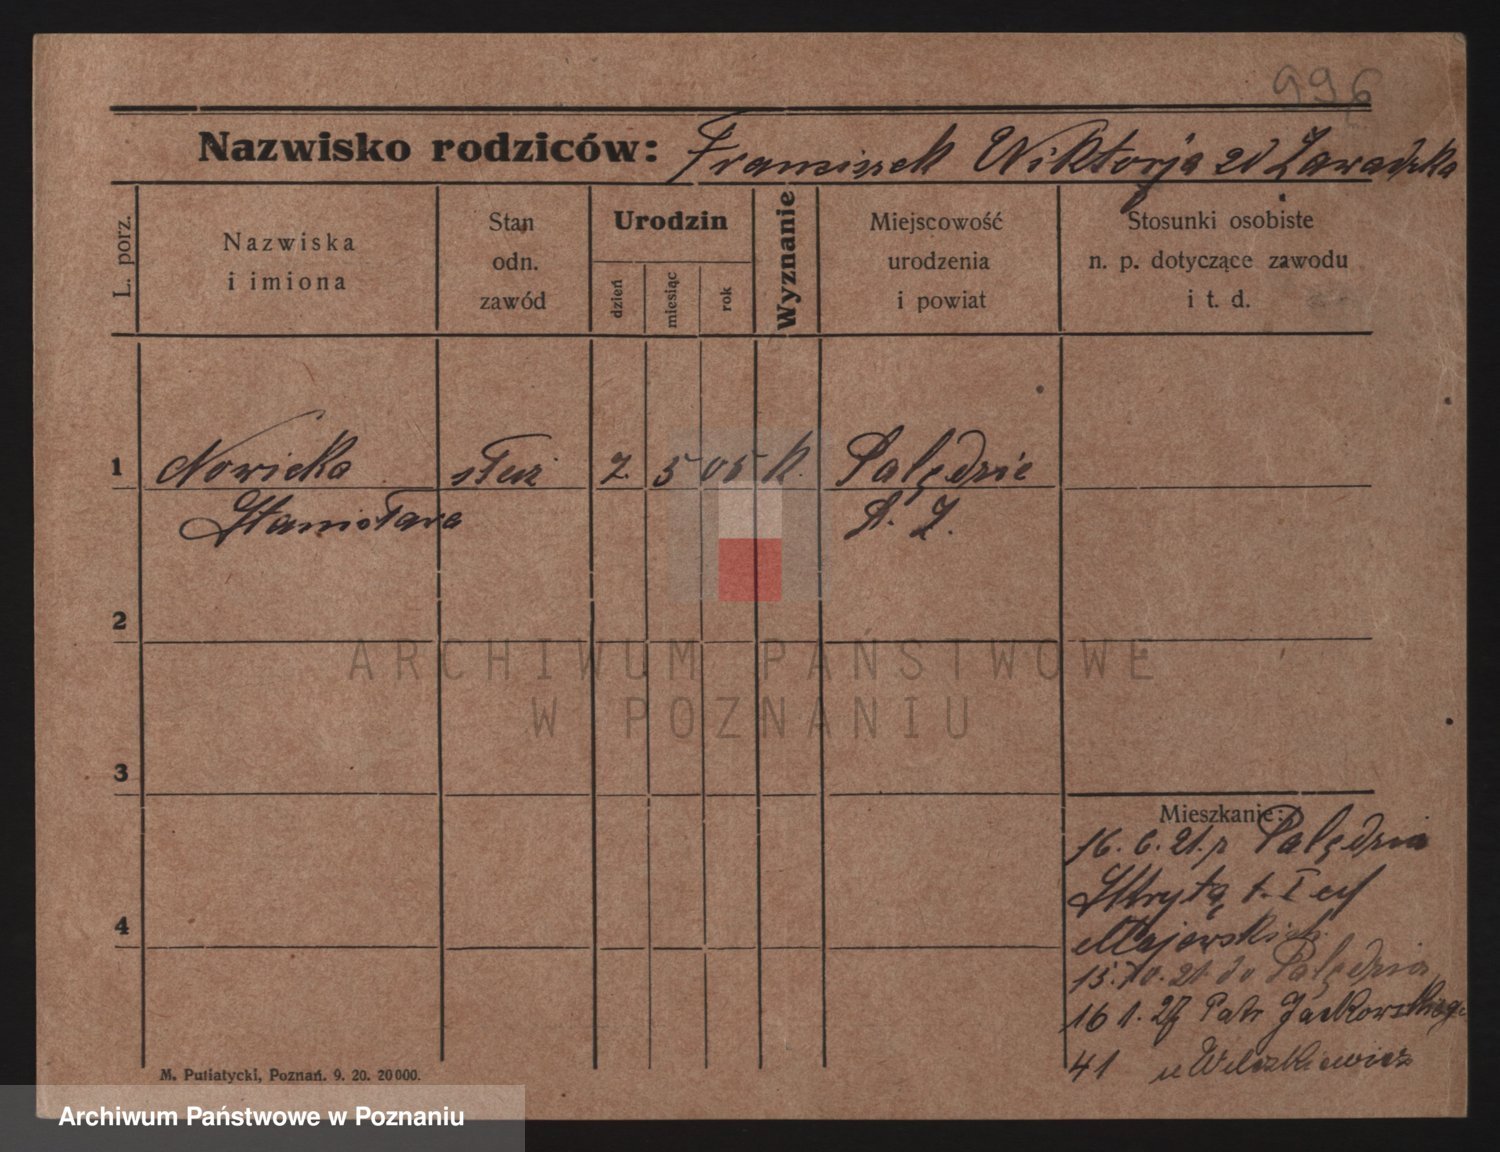 996
Nazwisko rodziców: Franciszek Wiktorja zd Zawadzka
L. porz.
Nazwiska
i imiona
Stan
odn.
zawód
Urodzin
dzień
miesiąc
rok
Wyznanie
Miejscowość
urodzenia
i powiat
Stosunki osobiste
n. p. dotyczące zawodu
i t. d.
1 Nowicka służ 7. 5 05 K. Palędzie
Stanisława P. Z.
2
ARCHIWUM PAŃSTWOWE
W POZNANIU
3
Mieszkanie:
16. 6. 21. z Palędzia
4
Majewskich
15. 10. 21. do Palędzia
16 1. 27 Patr Jackowskiego
41 u Welszkiewicz
M. Putiatycki, Poznań. 9. 20. 20000.
Archiwum Państwowe w Poznaniu